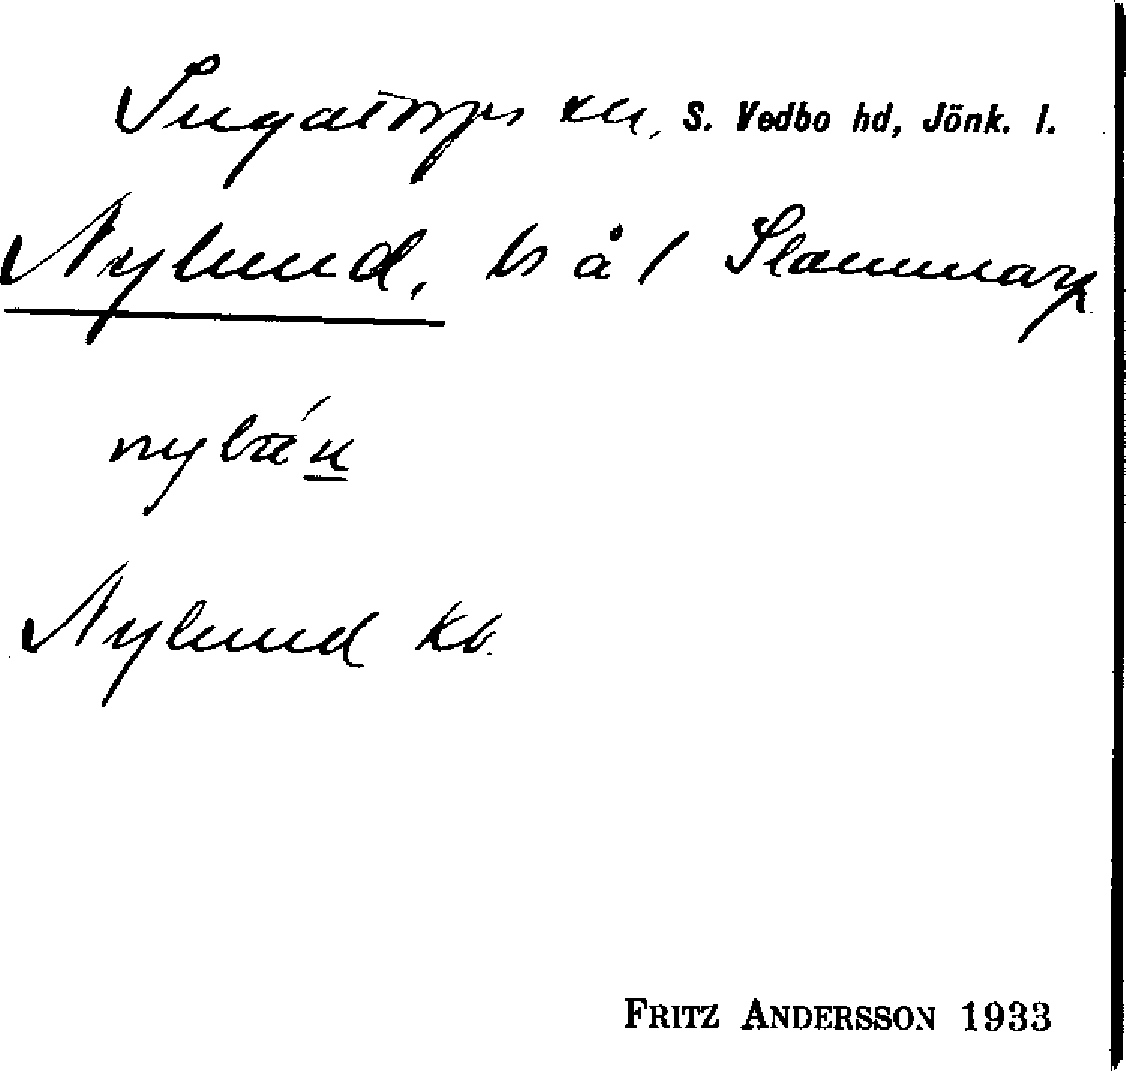 Ingatorps sn, S. Vedbo hd, Jönk. l.
Nylund, ls å 1 Slammarp
Nylund kb.
FRITZ ANDERSSON 1933